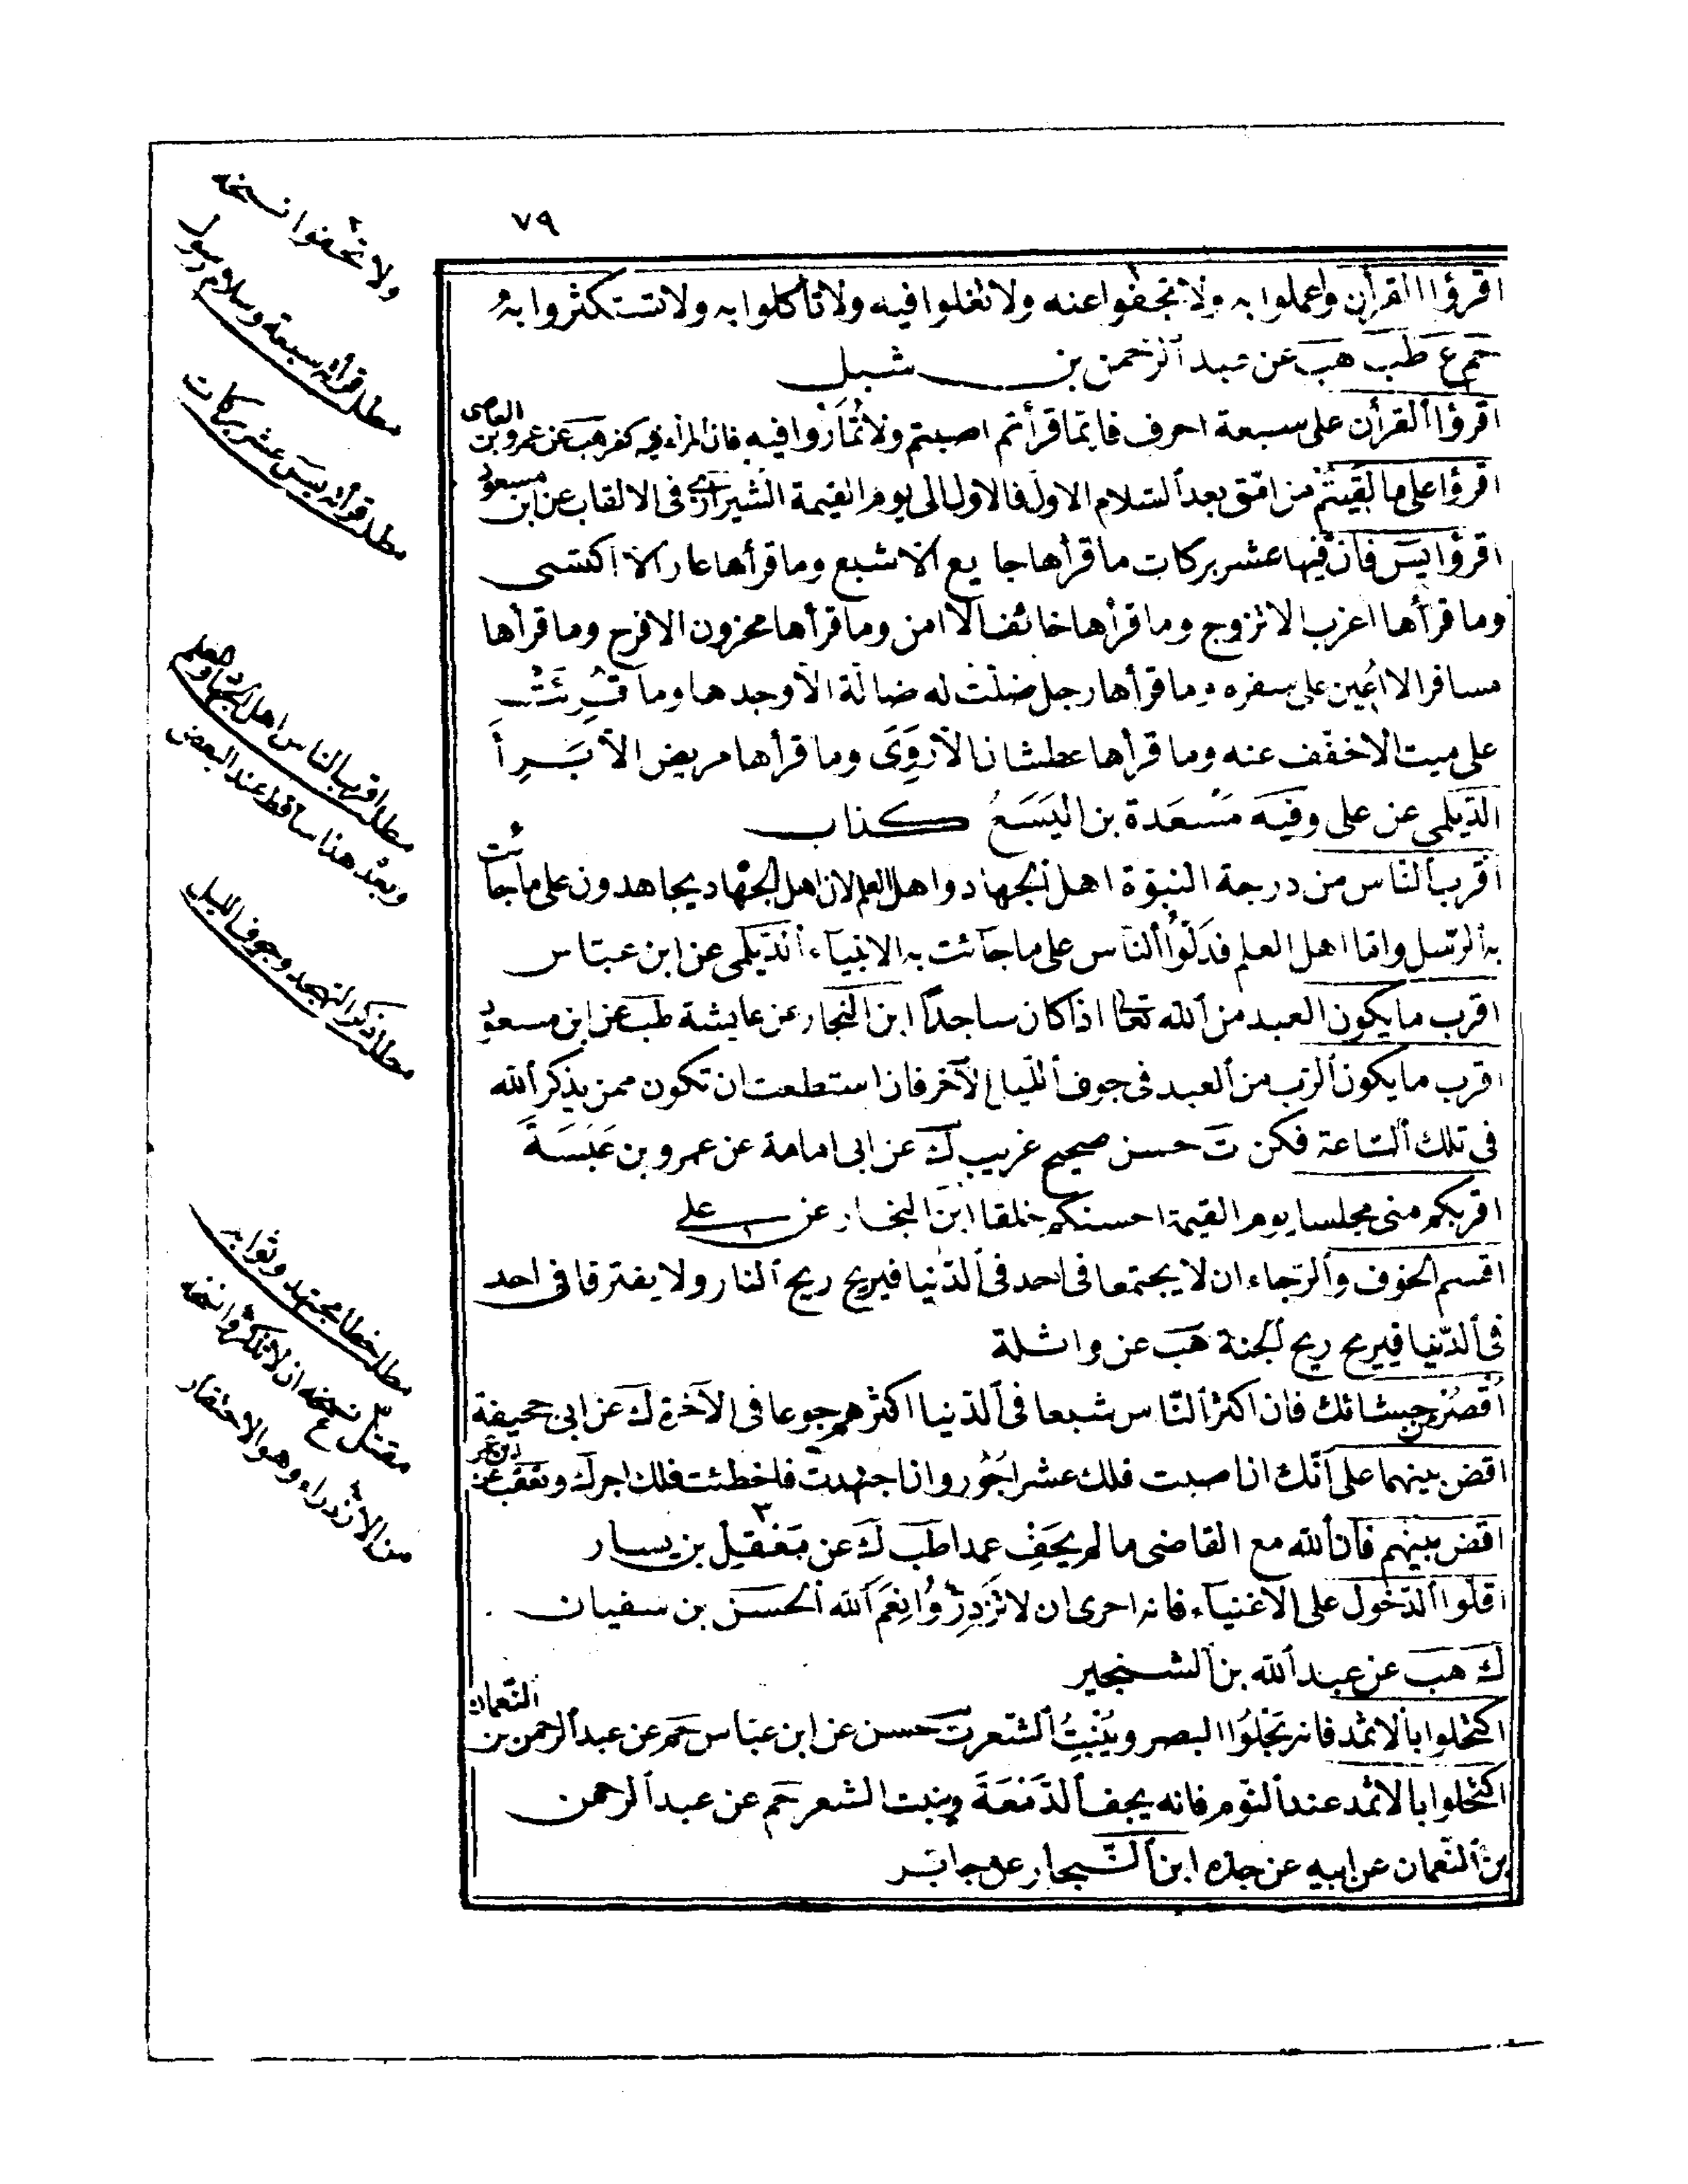 ٧٩
اقرؤا القرأن واعملوا به ولا تجفوا عنه ولا تغلوا فيه ولا تأكلوا به ولا تستكثروا به
حم ع طب هب عن عبد الرحمن بن شبل
اقرؤا القرأن على سبعة احرف فايما قرأتم اصبتم ولا تماروا فيه فان المراء فيه كفر هب عن عمرو بن العاصى
اقرؤا على ما لقيتم من امتى بعد السلام الاول فالاول الى يوم القيمة الشيرازى فى الالقاب عن ابن مسعود
اقرؤا يس فان فيها عشر بركات ما قرأها جايع الا شبع وما قرأها عار الا اكتسى
وما قرأها اعزب الا تزوج وما قرأها خائف الا امن وما قرأها محزون الا فرح وما قرأها
مسافر الا اعين على سفره وما قرأها رجل ضلت له ضالة الا وجدها وما قرئت
على ميت الا خفف عنه وما قرأها عطشانا الا روى وما قرأها مريض الا برأ
الديلمى عن على وفيه مسعدة بن اليسع كذاب
اقرب الناس من درجة النبوة اهل الجهاد واهل العلم لان اهل الجهاد يجاهدون على ما جائت
به الرسل واما اهل العلم فدلوا الناس على ما جائت به الانبياء الديلمى عن ابن عباس
اقرب ما يكون العبد من الله تعالى اذا كان ساجدا ابن النجار عن عايشة طب عن ابن مسعود
اقرب ما يكون الرب من العبد فى جوف الليل الآخر فان استطعت ان تكون ممن يذكر الله
فى تلك الساعة فكن ت حسن صحيح غريب ك عن ابى امامة عن عمرو بن عبسة
اقربكم منى مجلسا يوم القيمة احسنكم خلقا ابن النجار عن على
اقسم الخوف والرجاء ان لا يجتمعا فى احد فى الدنيا فيريح ريح النار ولا يفترقا فى احد
فى الدنيا فيريح ريح الجنة هب عن واثلة
اقصر من جشائك فان اكثر الناس شبعا فى الدنيا اكثرهم جوعا فى الآخرة ك عن ابى جحيفة
اقض بينهما على انك ان اصبت فلك عشر اجور وان اجتهدت فاخطئت فلك اجر ك وتعقب عن ابن عمر
اقض بينهم فان الله مع القاضى ما لم يحف عمدا طب ك عن معقل بن يسار
اقلوا الدخول على الاغنياء فانه احرى ان لا تزدروا نعم الله الحسن بن سفيان
ك هب عن عبد الله بن الشخير
اكتحلوا بالاثمد فانه يجلوا البصر وينبت الشعر ت حسن عن ابن عباس حم عن عبد الرحمن بن النعمان
اكتحلوا بالاثمد عند النوم فانه يجف الدمعة وينبت الشعر حم عن عبد الرحمن
بن النعمان عن ابيه عن جده ابن النجار عن جابر
ولا تجفوا نسخه
مطلب قرأنه سبعة وسلام رسول
مطلب قرأنه يس عشر بركات
مطلب اقرب الناس اهل الجهاد والعلم
وبعد هذا ساقط عند البعض
مطلب ذكر التهجد وجوف الليل
مطلب خطا مجتهد وثوابه
نسخه ان لا تنكروا نسخه
من الازدراء وهو الاحتقار